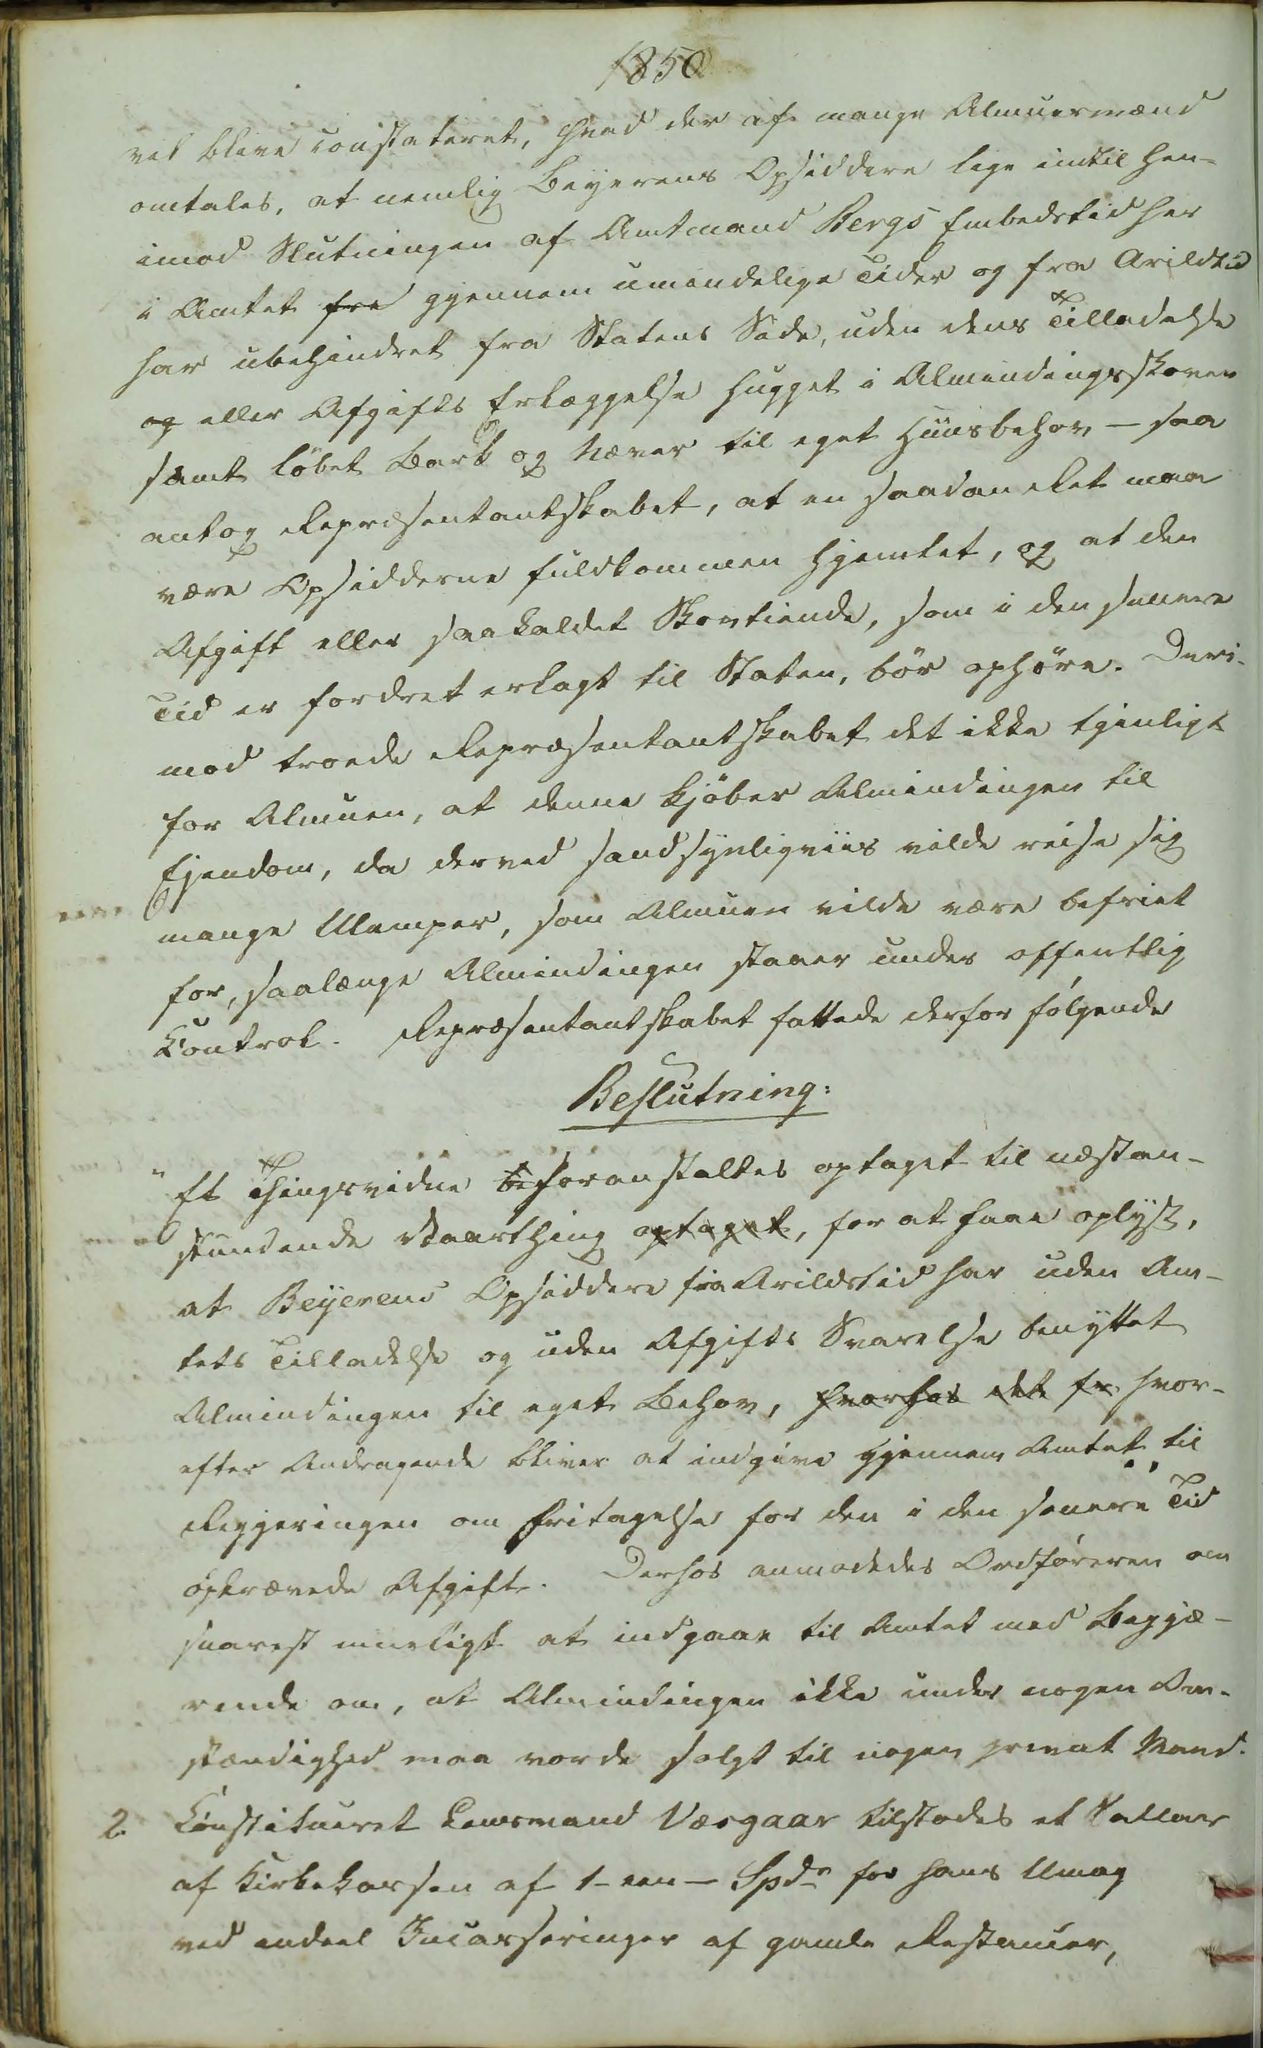 1850
vel blive constateret, hvad der af mange Almuesmænd
omtales, at nemlig Beyerens Opsiddere lige indtil hen-
imod Slutningen af Amtmand Bergs Embedstid her
i Amtet fra gjennem umindelige Tider og fra Arildstid
har ubehindret fra Statens Side, uden dens Tilladelse
og eller Afgifts Erlæggelse hugget i Almindingsskoven
samt løbet Bark og Næver til eget Huusbehov - saa
antog Repræsentantskabet, at en saadan Ret maa
være Opsidderne fuldkommen hjemlet, og at den
Afgift eller saakaldet Skovtiende, som i den senere
Tid er fordret erlagt til Staten, bør ophøre. Deri-
mod troede Repræsentantskabet det ikke tjenligt
for Almuen, at denne kjøber Almindingen til
Ejendom, da derved sandsynligviis vilde reise sig
mange Ulemper, som Almuen vilde være befriet
for, saalænge Almindingen staaer under offentlig
Kontrol. Repræsentantskabet fattede derfor følgende
Beslutning:
"Et Thingsvidne be foranstaltes optaget til næstan-
stundende Vaarthing optaget, for at faae oplyst,
at Beyerens Opsiddere fra Arildstid har uden Am-
tets Tilladelse og uden Afgifts Svarelse benyttet
Almindingen til eget Behov, hvorhos det fr hvor-
efter Andragende bliver at indgive gjennem Amtet til
Regjeringen om Fritagelse for den i den senere Tid
opkrævede Afgift. Derhos anmodedes Ordføreren om
snarest mueligt at indgaae til Amtet med Begjæ-
rende om, at Almindingen ikke under nogen Om-
stændighed maa vorde solgt til nogen privat Mand.
2. Konstitueret Lensmand Væsgaar tilstodes et Sallær
af Kirkekassen af 1 - een - Spdr for hans Umag
ved endeel Incasseringer af gamle Restancer,